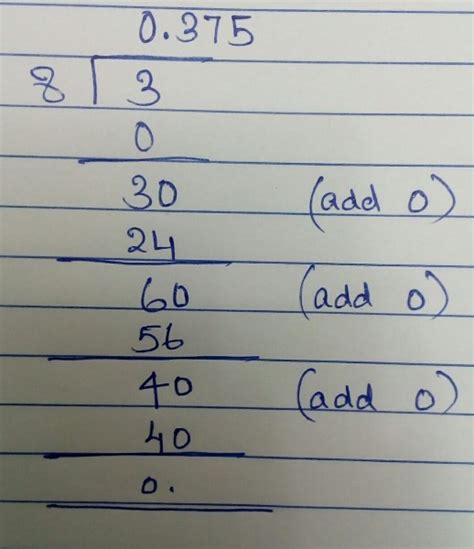 0.375
8 3
0
30 (add 0)
24
60 (add 0)
56
40 (add 0)
40
0.